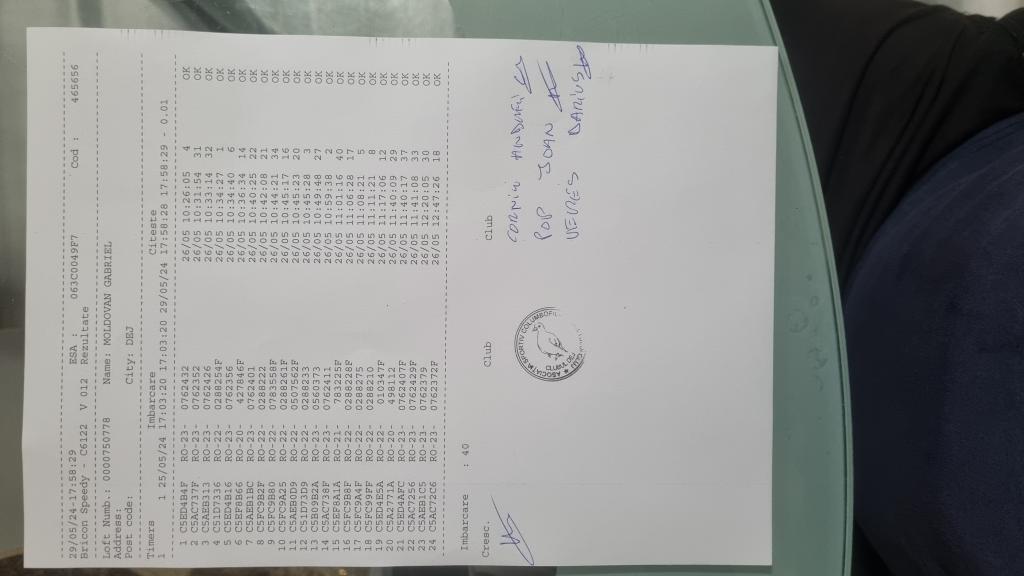 29/05/24-17:58:29 ESA : 063C0049F7 Cod : 465656
Bricon Speedy - C6122 V 012 Rezultate
Loft Numb.: 0000750778 Name: MOLDOVAN GABRIEL
Address:
Post code: City: DEJ
Timers Imbarcare Citeste
1 25/05/24 17:03:20 17:03:20 29/05/24 17:58:28 17:58:29 - 0.01
1 C5ED4B4F RO-23- 0762432 26/05 10:26:05 4 OK
2 C5AC737F RO-23- 0762352 26/05 10:31:54 31 OK
3 C5AEB313 RO-23- 0762426 26/05 10:33:14 32 OK
4 C51D7336 RO-22- 0288254F 26/05 10:34:27 1 OK
5 C5ED4B16 RO-23- 0762356 26/05 10:34:40 6 OK
6 C5EF8B66 RO-20- 427846F 26/05 10:36:34 14 OK
7 C5AEB1BC RO-23- 0762401 26/05 10:40:25 22 OK
8 C5FC9B2F RO-22- 0288222 26/05 10:42:08 21 OK
9 C5FC9B80 RO-22- 0783558F 26/05 10:44:21 34 OK
10 C5FC9A25 RO-22- 0288261F 26/05 10:45:17 16 OK
11 C5AEB0D9 RO-22- 0507562F 26/05 10:45:23 20 OK
12 C51D73D9 RO-22- 0288233 26/05 10:45:28 3 OK
13 C5B09B2A RO-23- 0560373 26/05 10:49:48 27 OK
14 C5AC738F RO-23- 0762411 26/05 10:59:38 2 OK
15 C5EF8A1A RO-21- 7832255F 26/05 11:01:16 40 OK
16 C5FC9B8F RO-22- 0288228F 26/05 11:06:28 17 OK
17 C5FC9A4F RO-22- 0288275 26/05 11:08:21 5 OK
18 C5FC99FF RO-22- 0288210 26/05 11:11:21 8 OK
19 C5ED4E5A RO-22- 0193347F 26/05 11:17:06 12 OK
20 C5A2771A RO-20- 498112 26/05 11:40:09 29 OK
21 C5ED4AFC RO-23- 0762407F 26/05 11:40:17 37 OK
22 C5AC7256 RO-23- 0762429F 26/05 11:41:08 33 OK
23 C5AEB1C5 RO-23- 0762379 26/05 12:20:05 30 OK
24 C5AC72C6 RO-23- 0762372F 26/05 12:47:26 18 OK
Imbarcare : 40
Cresc. Club Club
POP IOAN
VEREȘ DARIUS
ASOCIAȚIA SPORTIV COLUMBOFILĂ
CLUBUL DEJ